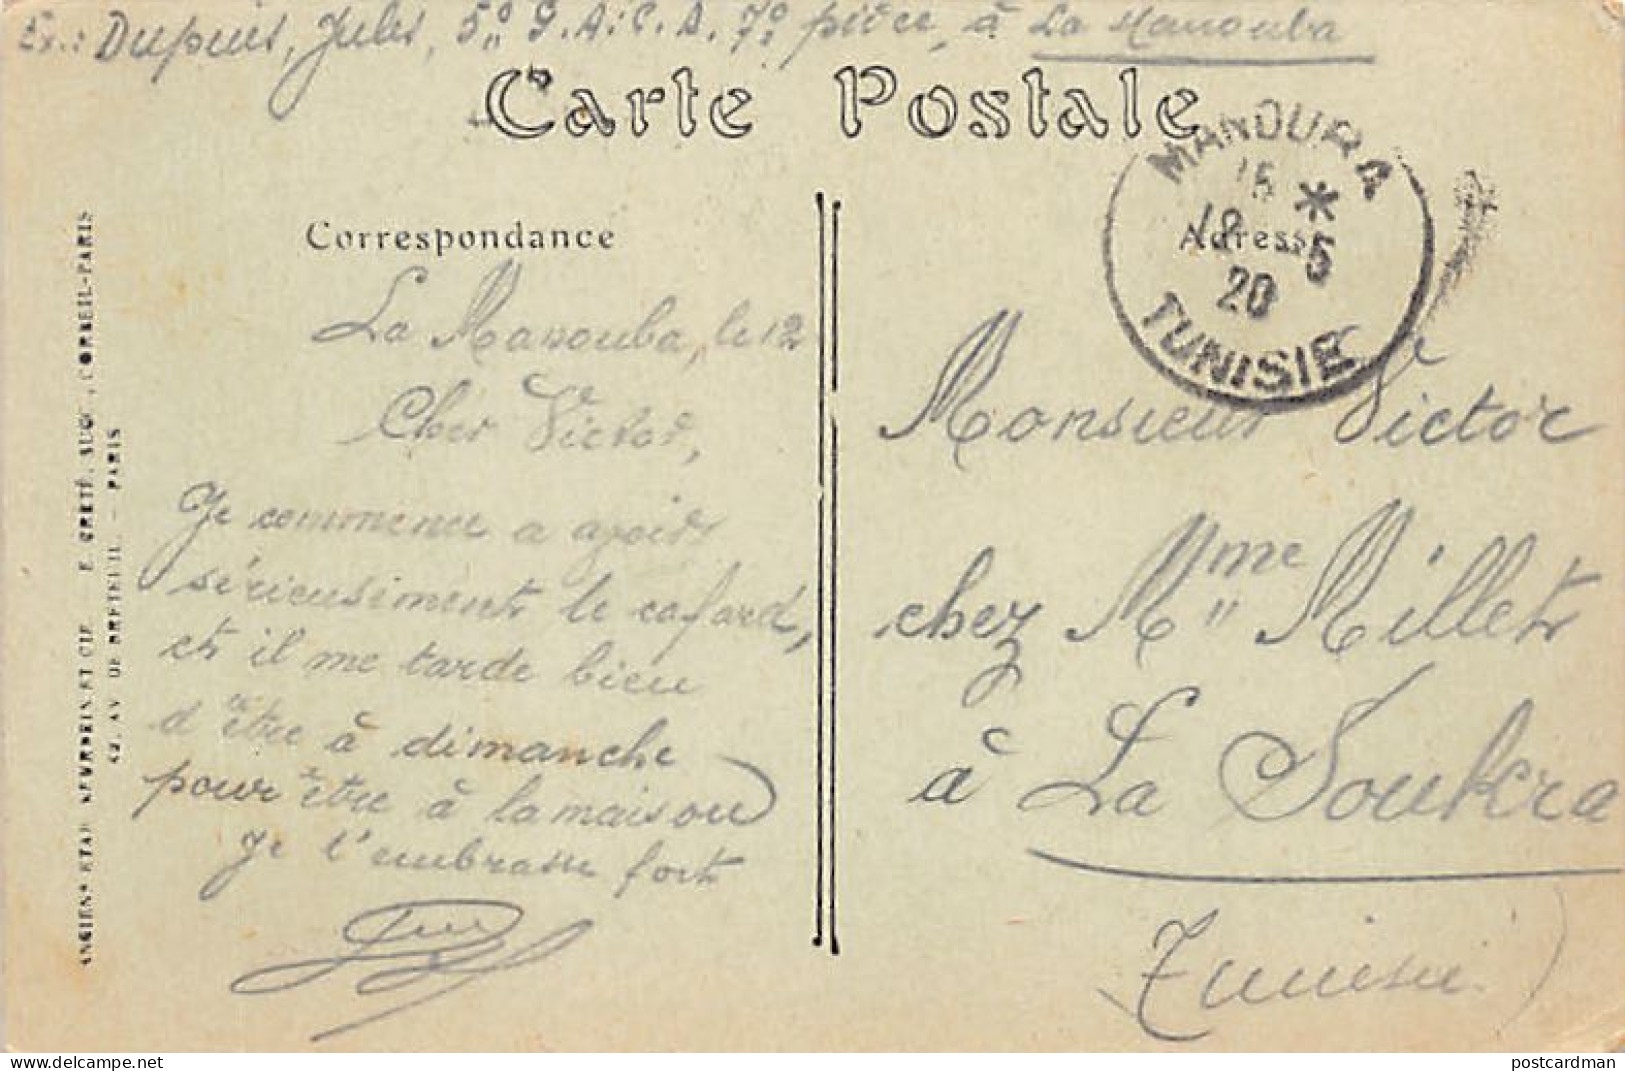 Ex.: Dupuis, Jules, 5° G.A.C.A. 7° pièce, à La Manouba
Carte Postale
Correspondance
Adresse
MANOUBA
15 *
18 5
20
TUNISIE
La Manouba, le 12
Cher Victor,
Je commence a avoir
sérieusement le cafard,
et il me tarde bien
d'être à dimanche
pour être à la maison
Je t'embrasse fort
Monsieur Victor
chez Mme Millet
à La Soukra
Tunisie
ANCIENS ETAB NEURDEIN ET CIE E. CRÉTÉ, SUCC, CORBEIL-PARIS
52, AV DE BRETEUIL - PARIS
postcardman